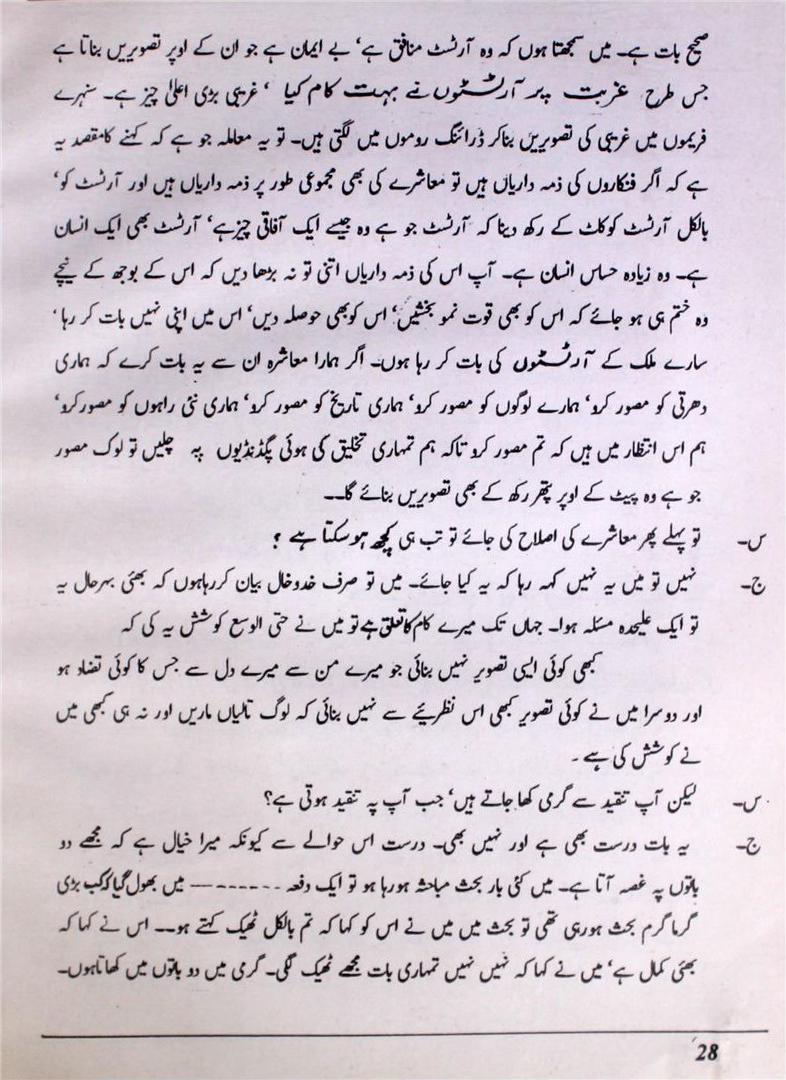 صحیح بات ہے۔ میں سمجھتا ہوں کہ وہ آرٹسٹ منافق ہے‘ بے ایمان ہے جو ان کے اوپر تصویریں بناتا ہے
جس طرح غربت پر آرٹسٹوں نے بہت کام کیا ‘ غریبی بڑی اعلیٰ چیز ہے۔ سنہرے
فریموں میں غریبی کی تصویریں بناکر ڈرائنگ روموں میں لگتی ہیں۔ تو یہ معاملہ جو ہے کہ کہنے کامقصد یہ
ہے کہ اگر فنکاروں کی ذمہ داریاں ہیں تو معاشرے کی بھی مجموعی طور پر ذمہ داریاں ہیں اور آرٹسٹ کو‘
بالکل آرٹسٹ کوکاٹ کے رکھ دینا کہ آرٹسٹ جو ہے وہ جیسے ایک آفاقی چیزہے‘ آرٹسٹ بھی ایک انسان
ہے۔ وہ زیادہ حساس انسان ہے۔ آپ اس کی ذمہ داریاں اتنی تو نہ بڑھا دیں کہ اس کے بوجھ کے نیچے
وہ ختم ہی ہو جائے کہ اس کو بھی قوت نمو بخشیں‘ اس کوبھی حوصلہ دیں‘ اس میں اپنی نہیں بات کر رہا‘
سارے ملک کے آرٹسٹوں کی بات کر رہا ہوں۔ اگر ہمارا معاشرہ ان سے یہ بات کرے کہ ہماری
دھرتی کو مصور کرو‘ ہمارے لوگوں کو مصور کرو‘ ہماری تاریخ کو مصور کرو‘ ہماری نئی راہوں کو مصورکرو‘
ہم اس انتظار میں ہیں کہ تم مصور کرو تاکہ ہم تمہاری تخلیق کی ہوئی پگڈنڈیوں پہ چلیں تو لوک مصور
جو ہے وہ پیٹ کے اوپر پتھر رکھ کے بھی تصویریں بنائے گا۔۔
س۔ تو پہلے پھر معاشرے کی اصلاح کی جائے تو تب ہی کچھ ہو سکتا ہے ؟
ج۔ نہیں تو میں یہ نہیں کہہ رہا کہ یہ کیا جائے۔ میں تو صرف خدوخال بیان کررہاہوں کہ بھئی بہرحال یہ
تو ایک علیحدہ مسئلہ ہوا۔ جہاں تک میرے کام کا تعلق ہے تو میں نے حتی الوسع کوشش یہ کی کہ
کبھی کوئی ایسی تصویر نہیں بنائی جو میرے من سے میرے دل سے جس کا کوئی تضاد ہو
اور دوسرا میں نے کوئی تصویر کبھی اس نظریئے سے نہیں بنائی کہ لوگ تالیاں ماریں اور نہ ہی کبھی میں
نے کوشش کی ہے ۔
س۔ لیکن آپ تنقید سے گرمی کھا جاتے ہیں‘ جب آپ پہ تنقید ہوتی ہے؟
ج۔ یہ بات درست بھی ہے اور نہیں بھی۔ درست اس حوالے سے کیونکہ میرا خیال ہے کہ مجھے دو
باتوں پہ غصہ آتا ہے۔ میں کئی بار بحث مباحثہ ہورہا ہو تو ایک دفعہ ------- میں بھول گیا کہ کب بڑی
گرما گرم بحث ہورہی تھی تو بحث میں میں نے اس کو کہا کہ تم بالکل ٹھیک کہتے ہو۔۔ اس نے کہا کہ
بھئی کمال ہے‘ میں نے کہا کہ نہیں نہیں تمہاری بات مجھے ٹھیک لگی۔ گرمی میں دو باتوں میں کھاتاہوں۔
28